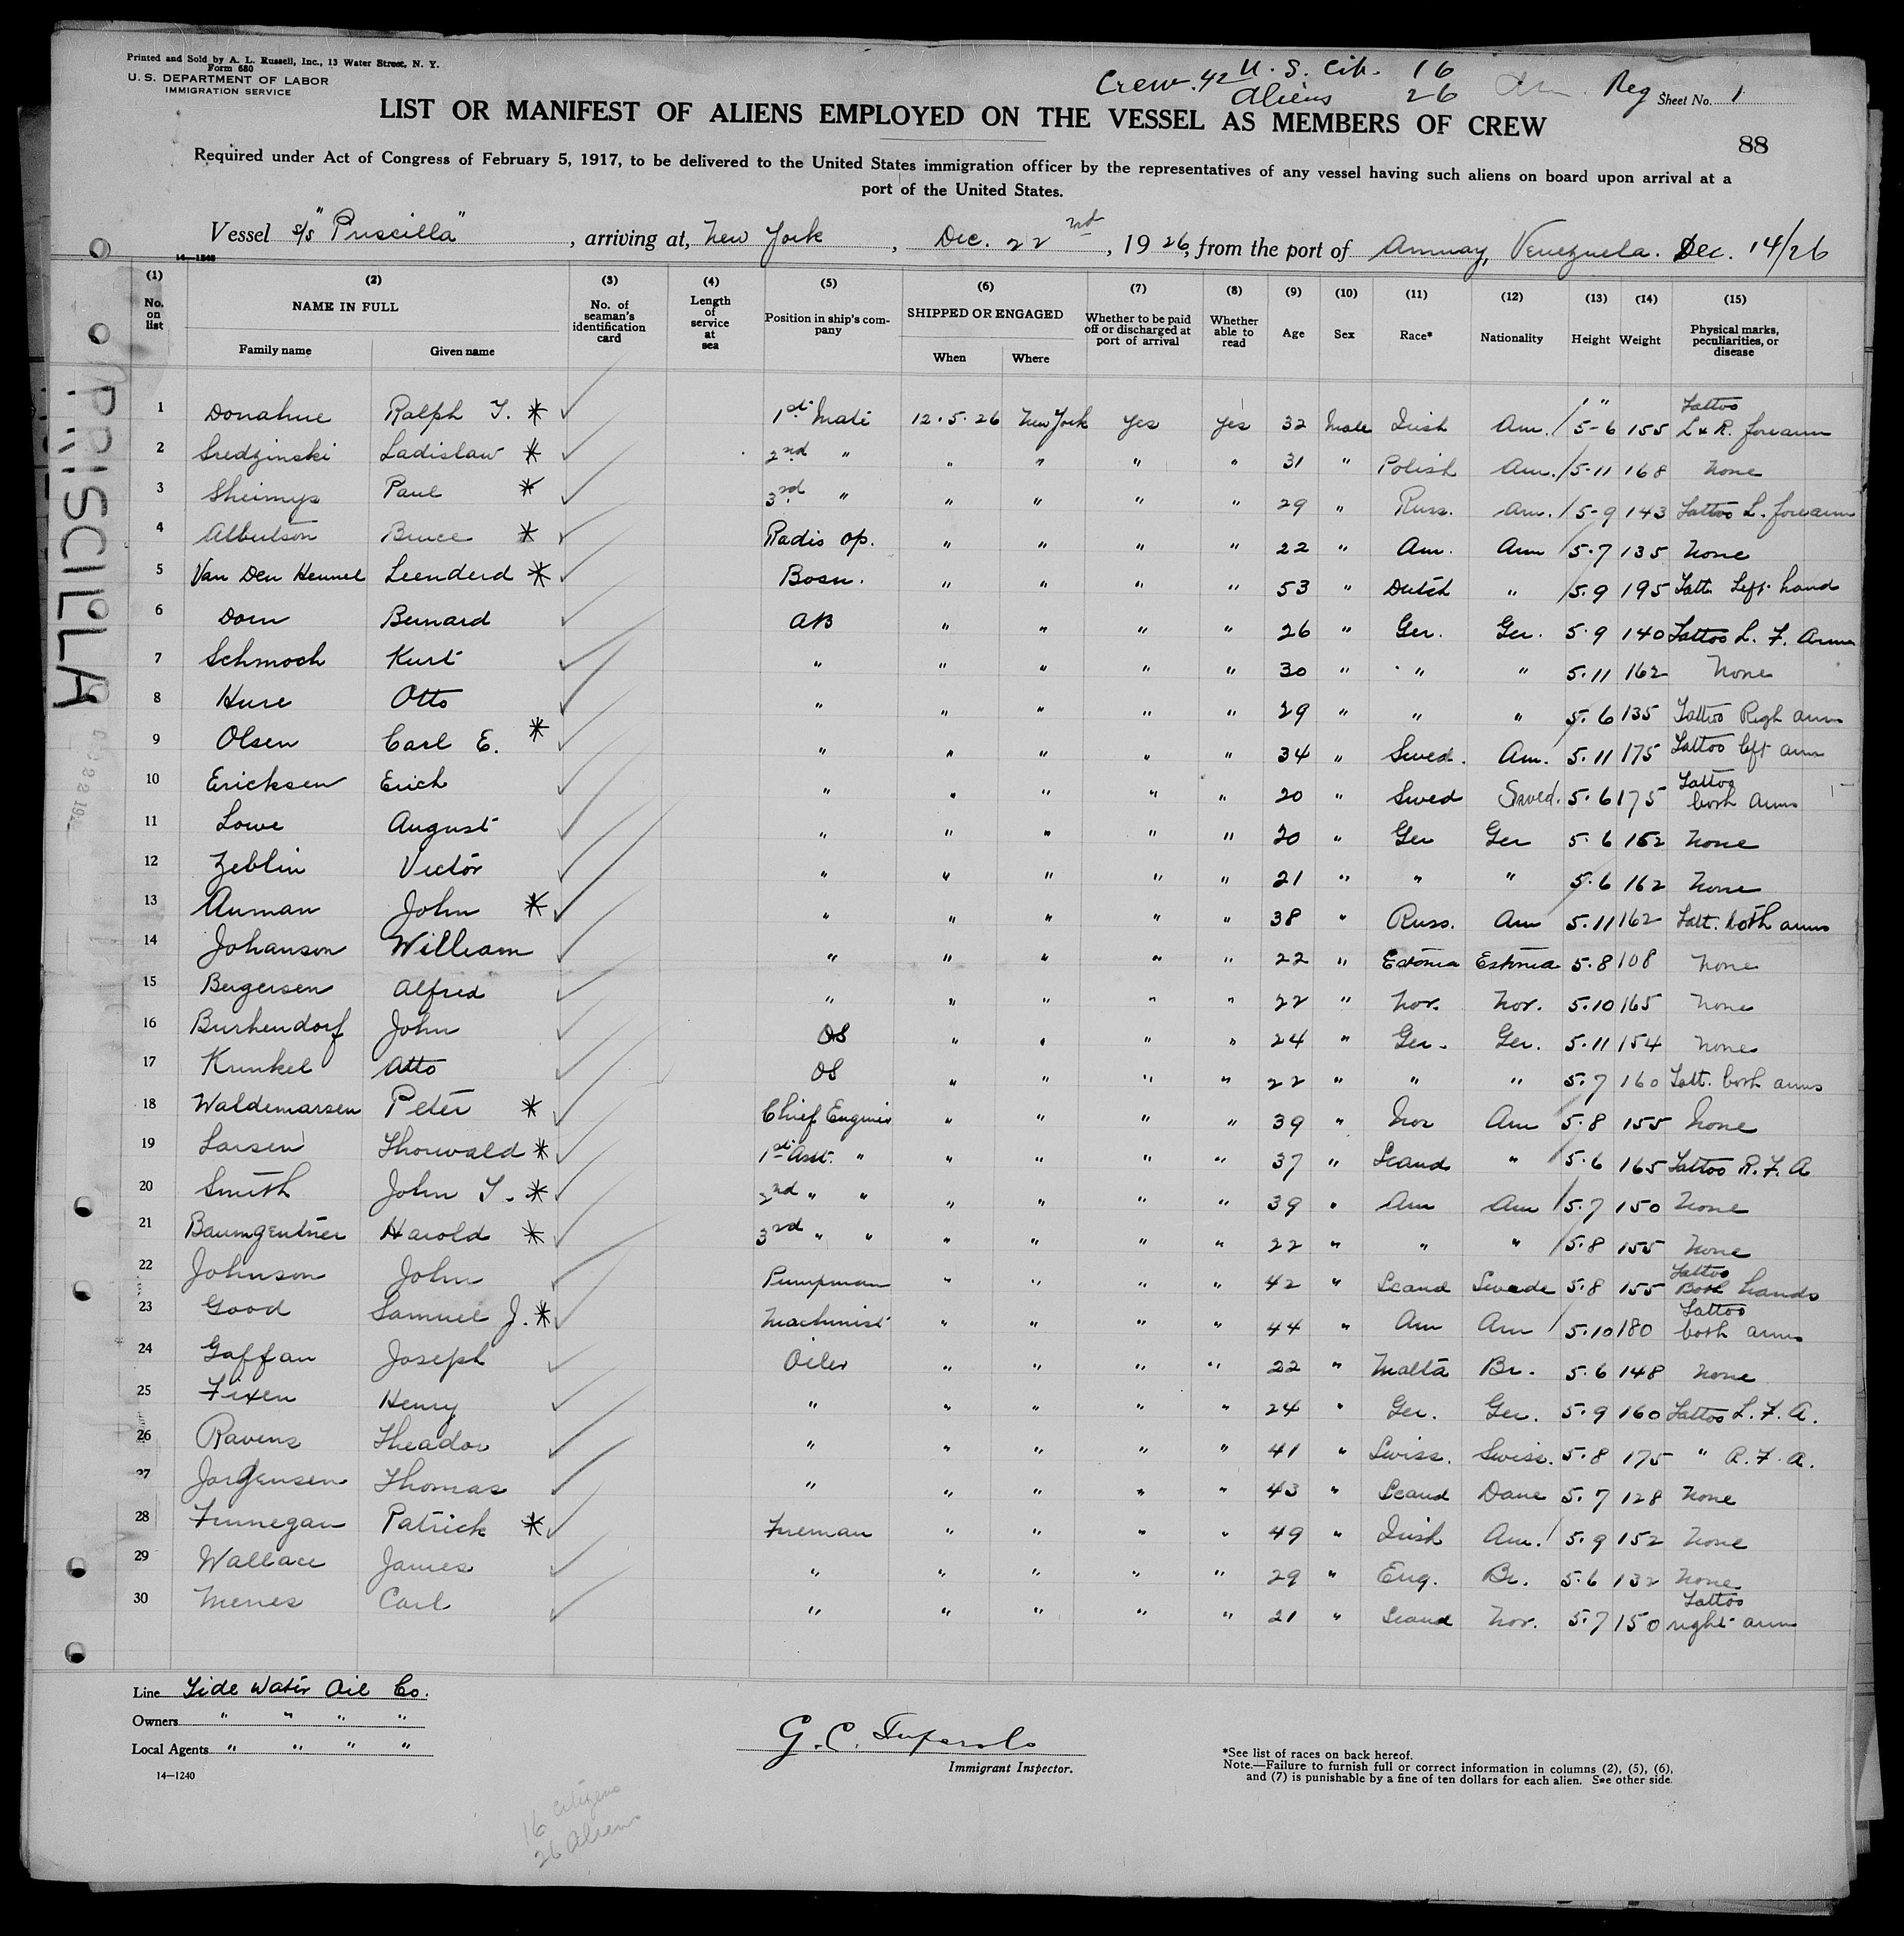 Printed and Sold by A. L. Russell, Inc., 13 Water Street, N. Y.
Form 680
U. S. DEPARTMENT OF LABOR
IMMIGRATION SERVICE
Crew. 42 U. S. Cit. 16
Aliens 26
Reg Sheet No. 1
LIST OR MANIFEST OF ALIENS EMPLOYED ON THE VESSEL AS MEMBERS OF CREW
88
Required under Act of Congress of February 5, 1917, to be delivered to the United States immigration officer by the representatives of any vessel having such aliens on board upon arrival at a
port of the United States.
Vessel s/s "Priscilla", arriving at, New York, Dec. 22nd, 1926, from the port of Amuay, Venezuela. Dec. 14/26
14—1240
(1) (2) (3) (4) (5) (6) (7) (8) (9) (10) (11) (12) (13) (14) (15)
No. on list NAME IN FULL Family name Given name No. of seaman's identification card Length of service at sea Position in ship's company SHIPPED OR ENGAGED When Where Whether to be paid off or discharged at port of arrival Whether able to read Age Sex Race* Nationality Height Weight Physical marks, peculiarities, or disease
1 Donahue Ralph T. * 1st Mate 12.5.26 New York Yes Yes 32 Male Irish Am. 5-6 155 Tattoo L & R. forearm
2 Sredzinski Ladislaw * 2nd " " " " " 31 " Polish Am. 5-11 168 None
3 Sheimys Paul * 3rd " " " " " 29 " Russ. Am. 5-9 143 Tattoo L. forearm
4 Albertson Bruce * Radio op. " " " " 22 " Am. Am 5.7 135 None
5 Van Den Heuvel Leenderd * Bosn. " " " " 53 " Dutch " 5.9 195 Tatt. Left hand
6 Dorn Bernard AB " " " " 26 " Ger. Ger. 5.9 140 Tattoo L. F. Arm
7 Schmoch Kurt " " " " " 30 " " " 5.11 162 None
8 Huse Otto " " " " " 29 " " " 5.6 135 Tattoo Righ arm
9 Olsen Carl E. * " " " " " 34 " Swed. Am. 5.11 175 Tattoo left arm
10 Ericksen Erich " " " " " 20 " Swed Swed. 5.6 175 Tattoo both arms
11 Lowe August " " " " " 20 " Ger Ger 5.6 162 None
12 Zeblin Victor " " " " " 21 " " " 5.6 162 None
13 Auman John * " " " " " 38 " Russ. Am 5.11 162 Tatt. both arms
14 Johanson William " " " " " 22 " Estonia Estonia 5.8 108 None
15 Bergersen Alfred " " " " " 22 " Nor. Nor. 5.10 165 None
16 Burhendorf John OS " " " " 24 " Ger. Ger. 5.11 154 None
17 Kunkel Atto OS " " " " 22 " " " 5.7 160 Tatt. both arms
18 Waldemarsen Peter * Chief Engineer " " " " 39 " Nor Am 5.8 155 None
19 Larsen Thorwald * 1st Asst. " " " " " 37 " Scand " 5.6 165 Tattoo R. F. A
20 Smith John T. * 2nd " " " " " " 39 " Am Am 5.7 150 None
21 Baumgentner Harold * 3rd " " " " " " 22 " " " 5.8 155 None
22 Johnson John Pumpman " " " " 42 " Scand Swede 5.8 155 Tattoo Both hands
23 Good Samuel J. * Machinist " " " " 44 " Am Am 5.10 180 Tattoo both arms
24 Gaffan Joseph Oiler " " " " 22 " Malta Br. 5.6 148 None
25 Fixen Henry " " " " " 24 " Ger. Ger. 5.9 160 Tattoo L. F. A.
26 Ravens Theador " " " " " 41 " Swiss. Swiss. 5.8 175 " R. F. A.
27 Jorgensen Thomas " " " " " 43 " Scand Dane 5.7 128 None
28 Finnegan Patrick * Fireman " " " " 49 " Irish Am. 5.9 152 None
29 Wallace James " " " " " 29 " Eng. Br. 5.6 132 None
30 Menes Carl " " " " " 21 " Scand Nor. 5.7 150 Tattoo right arm
PRISCILLA
Line Tide Water Oil Co.
Owners " " " "
Local Agents " " " "
14—1240
G. C.
Immigrant Inspector.
*See list of races on back hereof.
Note.—Failure to furnish full or correct information in columns (2), (5), (6),
and (7) is punishable by a fine of ten dollars for each alien. See other side.
16 citizens
26 Aliens